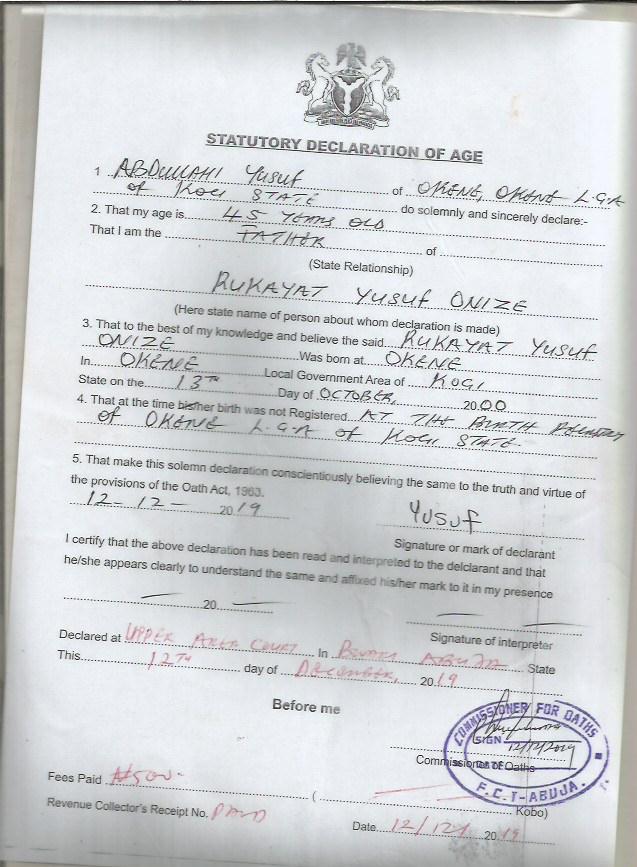 STATUTORY DECLARATION OF AGE
1 ABDULLAHI YUSUF of OKENE, OKENE L.G.A
of KOGI STATE do solemnly and sincerely declare:-
2. That my age is 45 YEARS OLD
That I am the FATHER of
(State Relationship)
RUKAYAT YUSUF ONIZE
(Here state name of person about whom declaration is made)
3. That to the best of my knowledge and believe the said RUKAYAT YUSUF
ONIZE Was born at OKENE
In OKENE Local Government Area of KOGI
State on the 13TH Day of OCTOBER, 2000
4. That at the time his/her birth was not Registered AT THE BIRTH
of OKENE L.G.A of KOGI STATE
5. That make this solemn declaration conscientiously believing the same to the truth and virtue of
the provisions of the Oath Act, 1963.
12-12- 2019 YUSUF
Signature or mark of declarant
I certify that the above declaration has been read and interpreted to the delclarant and that
he/she appears clearly to understand the same and affixed his/her mark to it in my presence
— 20 —
Signature of interpreter
Declared at UPPER AREA COURT In ABUJA State
This 12TH day of DECEMBER, 2019
Before me
COMMISSIONER FOR OATHS
SIGN
Commissioner of Oaths
DATE
F.C.T-ABUJA.
Fees Paid ₦500- ( Kobo)
Revenue Collector's Receipt No. PAID
Date 12/12/ 2019